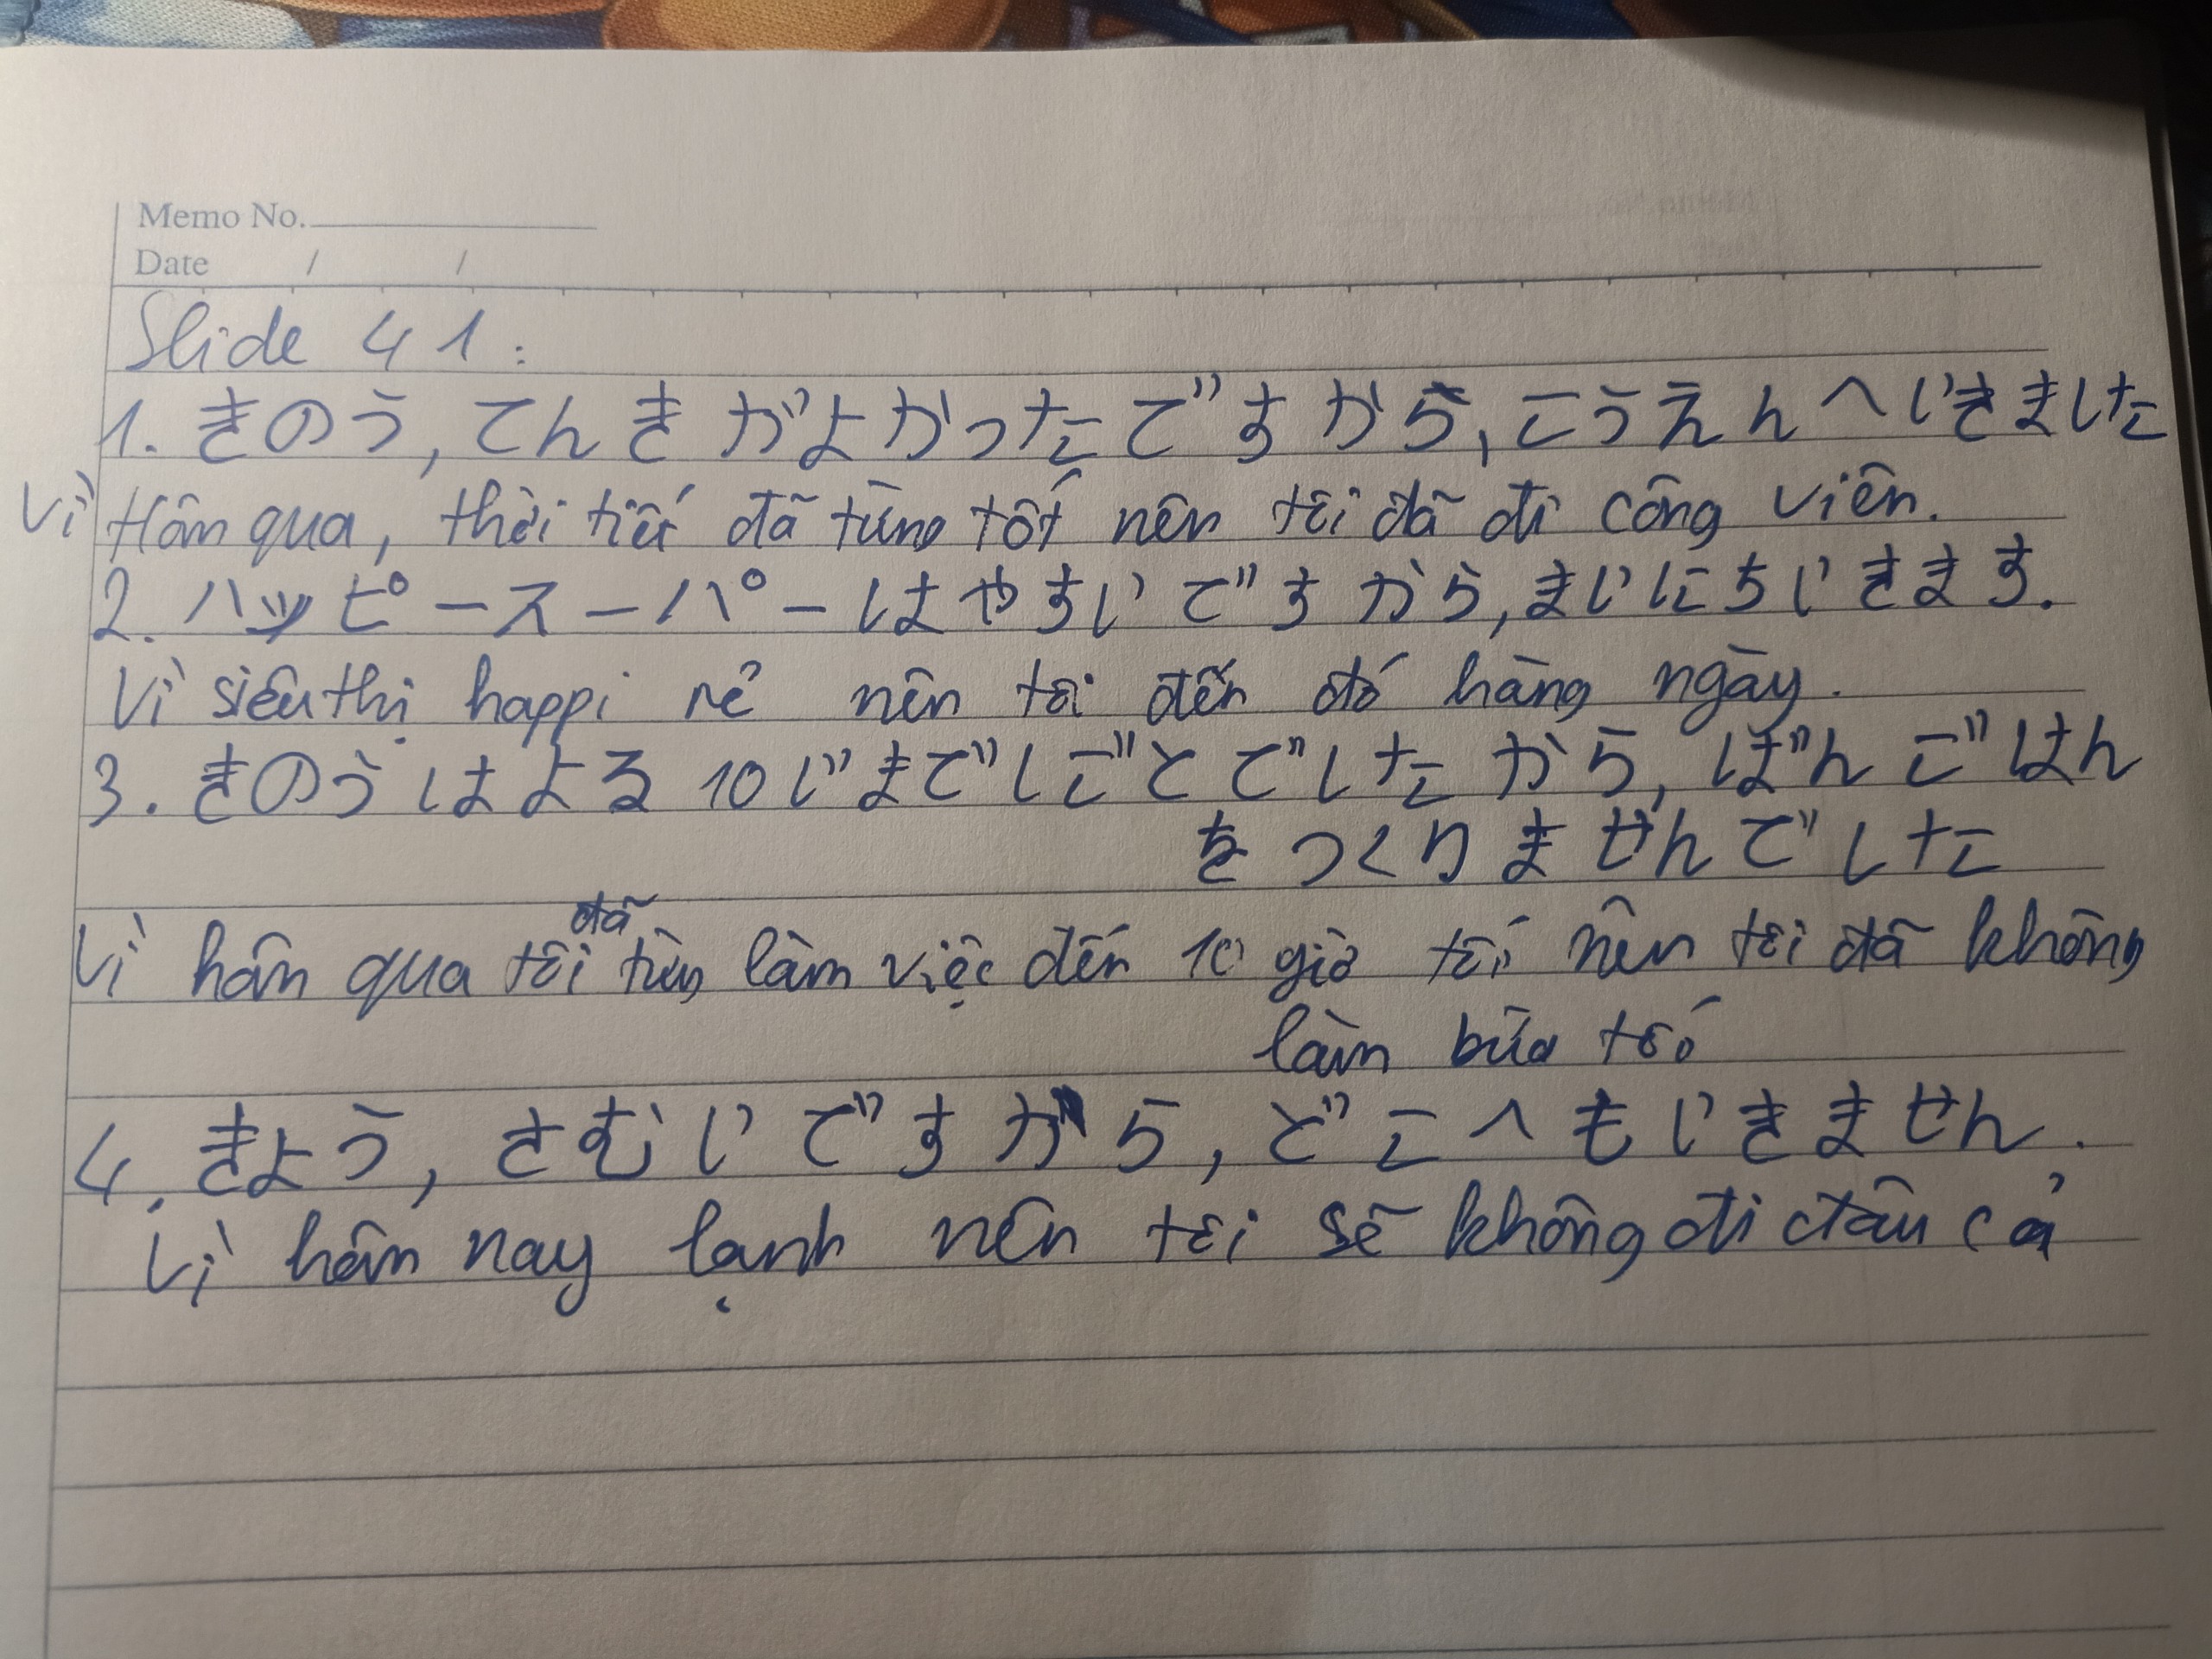 Memo No.
Date / /
Slide 41:
1. きのう, てんきがよかったですから, こうえんへいきました
Vì Hôm qua, thời tiết đã từng tốt nên tôi đã đi công viên.
2. ハッピースーパーはやすいですから, まいにちいきます.
Vì siêu thị happi rẻ nên tôi đến đó hàng ngày.
3. きのうはよる10じまでしごとでしたから, ばんごはん
をつくりませんでした
Vì hôm qua tôi đã từng làm việc đến 10 giờ tối nên tôi đã không
làm bữa tối
4. きょう, さむいですから, どこへもいきません.
Vì hôm nay lạnh nên tôi sẽ không đi đâu cả